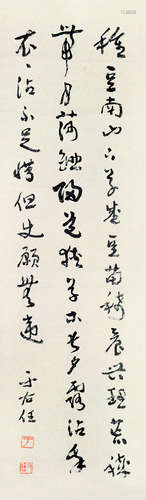 種豆南山下草盛豆苗稀晨興理荒穢
帶月荷鋤歸道狹草木長夕露沾我
衣衣沾不足惜但使願無違
于右任